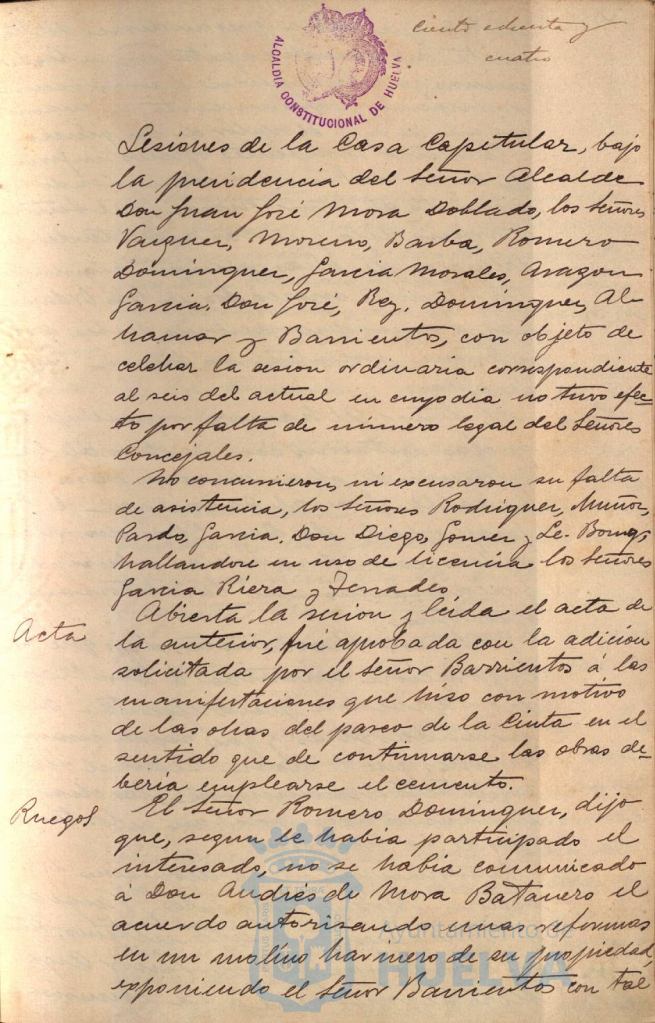 ciento ochenta y
cuatro
ALCALDIA CONSTITUCIONAL DE HUELVA
Sesiones de la Casa Capitular, bajo
la presidencia del Señor Alcalde
Don Juan José Mora Doblado, los Señores
Vazquez, Moreno, Barba, Romero
Dominguez, Garcia Morales, Aragon
Garcia. Don José, Rey. Dominguez, Al-
hamar y Barrientos, con objeto de
celebrar la sesion ordinaria correspondiente
al seis del actual en cuyo dia no tuvo efec-
to por falta de número legal del Señores
Concejales.
No concurrieron, ni excusaron su falta
de asistencia, los Señores Rodriguez, Muñoz,
Pardo, Garcia. Don Diego, Gomez y Le-Bourg,
hallandose en uso de licencia los Señores
Garcia Riera y Terrades
Acta
Abierta la sesion y leida el acta de
la anterior, fué aprobada con la adicion
solicitada por el Señor Barrientos á las
manifestaciones que hiso con motivo
de las obras del paseo de la Cinta en el
sentido que de continuarse las obras de-
beria emplearse el cemento.
Ruegos
El Señor Romero Dominguez, dijo
que, segun le habia participado el
interesado, no se habia comunicado
á Don Andrés de Mora Batanero el
acuerdo autorisando unas reformas
en un molino harinero de su propiedad,
exponiendo el Señor Barrientos con tal
Ayuntamiento de
HUELVA